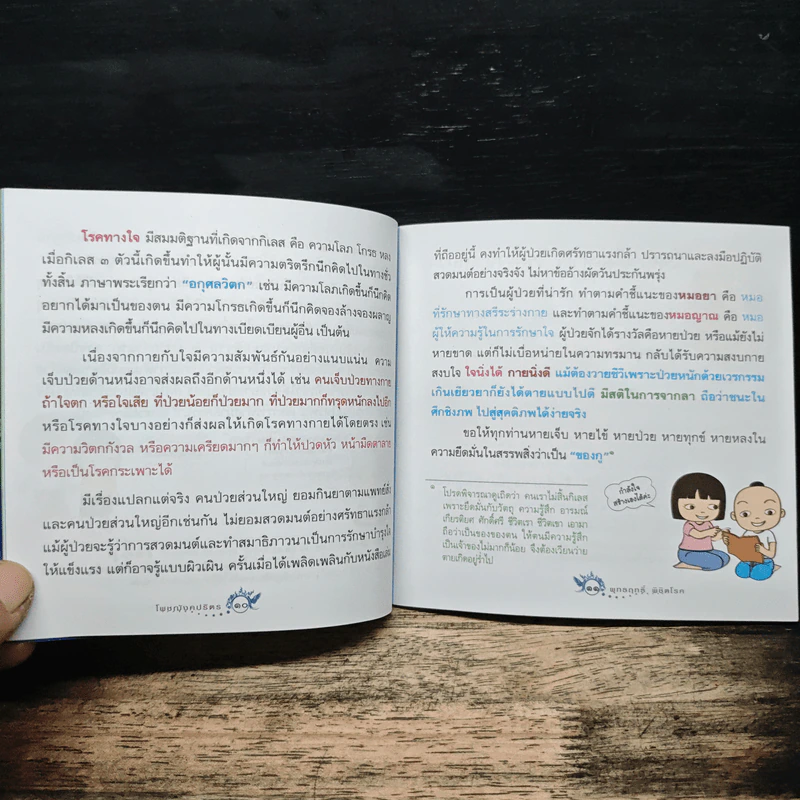 โรคทางใจ มีสมมติฐานที่เกิดจากกิเลส คือ ความโลภ โกรธ หลง
เมื่อกิเลส ๓ ตัวนี้เกิดขึ้นทำให้ผู้นั้นมีความตริตรึกนึกคิดไปในทางชั่ว
ทั้งสิ้น ภาษาพระเรียกว่า “อกุศลวิตก” เช่น มีความโลภเกิดขึ้นก็นึกคิด
อยากได้มาเป็นของตน มีความโกรธเกิดขึ้นก็นึกคิดจองล้างจองผลาญ
มีความหลงเกิดขึ้นก็นึกคิดไปในทางเบียดเบียนผู้อื่น เป็นต้น
เนื่องจากกายกับใจมีความสัมพันธ์กันอย่างแนบแน่น ความ
เจ็บป่วยด้านหนึ่งอาจส่งผลถึงอีกด้านหนึ่งได้ เช่น คนเจ็บป่วยทางกาย
ถ้าใจตก หรือใจเสีย ที่ป่วยน้อยก็ป่วยมาก ที่ป่วยมากก็ทรุดหนักลงไปอีก
หรือโรคทางใจบางอย่างก็ส่งผลให้เกิดโรคทางกายได้โดยตรง เช่น
มีความวิตกกังวล หรือความเครียดมากๆ ก็ทำให้ปวดหัว หน้ามืดตาลาย
หรือเป็นโรคกระเพาะได้
มีเรื่องแปลกแต่จริง คนป่วยส่วนใหญ่ ยอมกินยาตามแพทย์สั่ง
และคนป่วยส่วนใหญ่อีกเช่นกัน ไม่ยอมสวดมนต์อย่างศรัทธาแรงกล้า
แม้ผู้ป่วยจะรู้ว่าการสวดมนต์และทำสมาธิภาวนาเป็นการรักษาบำรุงใจ
ให้แข็งแรง แต่ก็อาจรู้แบบผิวเผิน ครั้นเมื่อได้เพลิดเพลินกับหนังสือเล่ม
โพชฌังคปริตร ๑๐
ที่ถืออยู่นี้ คงทำให้ผู้ป่วยเกิดศรัทธาแรงกล้า ปรารถนาและลงมือปฏิบัติ
สวดมนต์อย่างจริงจัง ไม่หาข้ออ้างผัดวันประกันพรุ่ง
การเป็นผู้ป่วยที่น่ารัก ทำตามคำชี้แนะของหมอยา คือ หมอ
ที่รักษาทางสรีระร่างกาย และทำตามคำชี้แนะของหมอญาณ คือ หมอ
ผู้ให้ความรู้ในการรักษาใจ ผู้ป่วยจักได้รางวัลคือหายป่วย หรือแม้ยังไม่
หายขาด แต่ก็ไม่เบื่อหน่ายในความทรมาน กลับได้รับความสงบกาย
สงบใจ ใจนิ่งได้ กายนิ่งดี แม้ต้องวายชีวิเพราะป่วยหนักด้วยเวรกรรม
เกินเยียวยาก็ยังได้ตายแบบไปดี มีสติในการจากลา ถือว่าชนะใน
ศึกชิงภพ ไปสู่สุคติภพได้ง่ายจริง
ขอให้ทุกท่านหายเจ็บ หายไข้ หายป่วย หายทุกข์ หายหลงใน
ความยึดมั่นในสรรพสิ่งว่าเป็น “ของกู”*
* โปรดพิจารณาดูเถิดว่า คนเราไม่สิ้นกิเลส
เพราะยึดมั่นกับวัตถุ ความรู้สึก อารมณ์
เกียรติยศ ศักดิ์ศรี ชีวิตเรา ชีวิตเขา เอามา
ถือว่าเป็นของของตน ให้ตนมีความรู้สึก
เป็นเจ้าของไม่มากก็น้อย จึงต้องเวียนว่าย
ตายเกิดอยู่ร่ำไป
กำลังใจ
สร้างเองได้ค่ะ
๑๑ พุทธฤทธิ์ พิชิตโรค